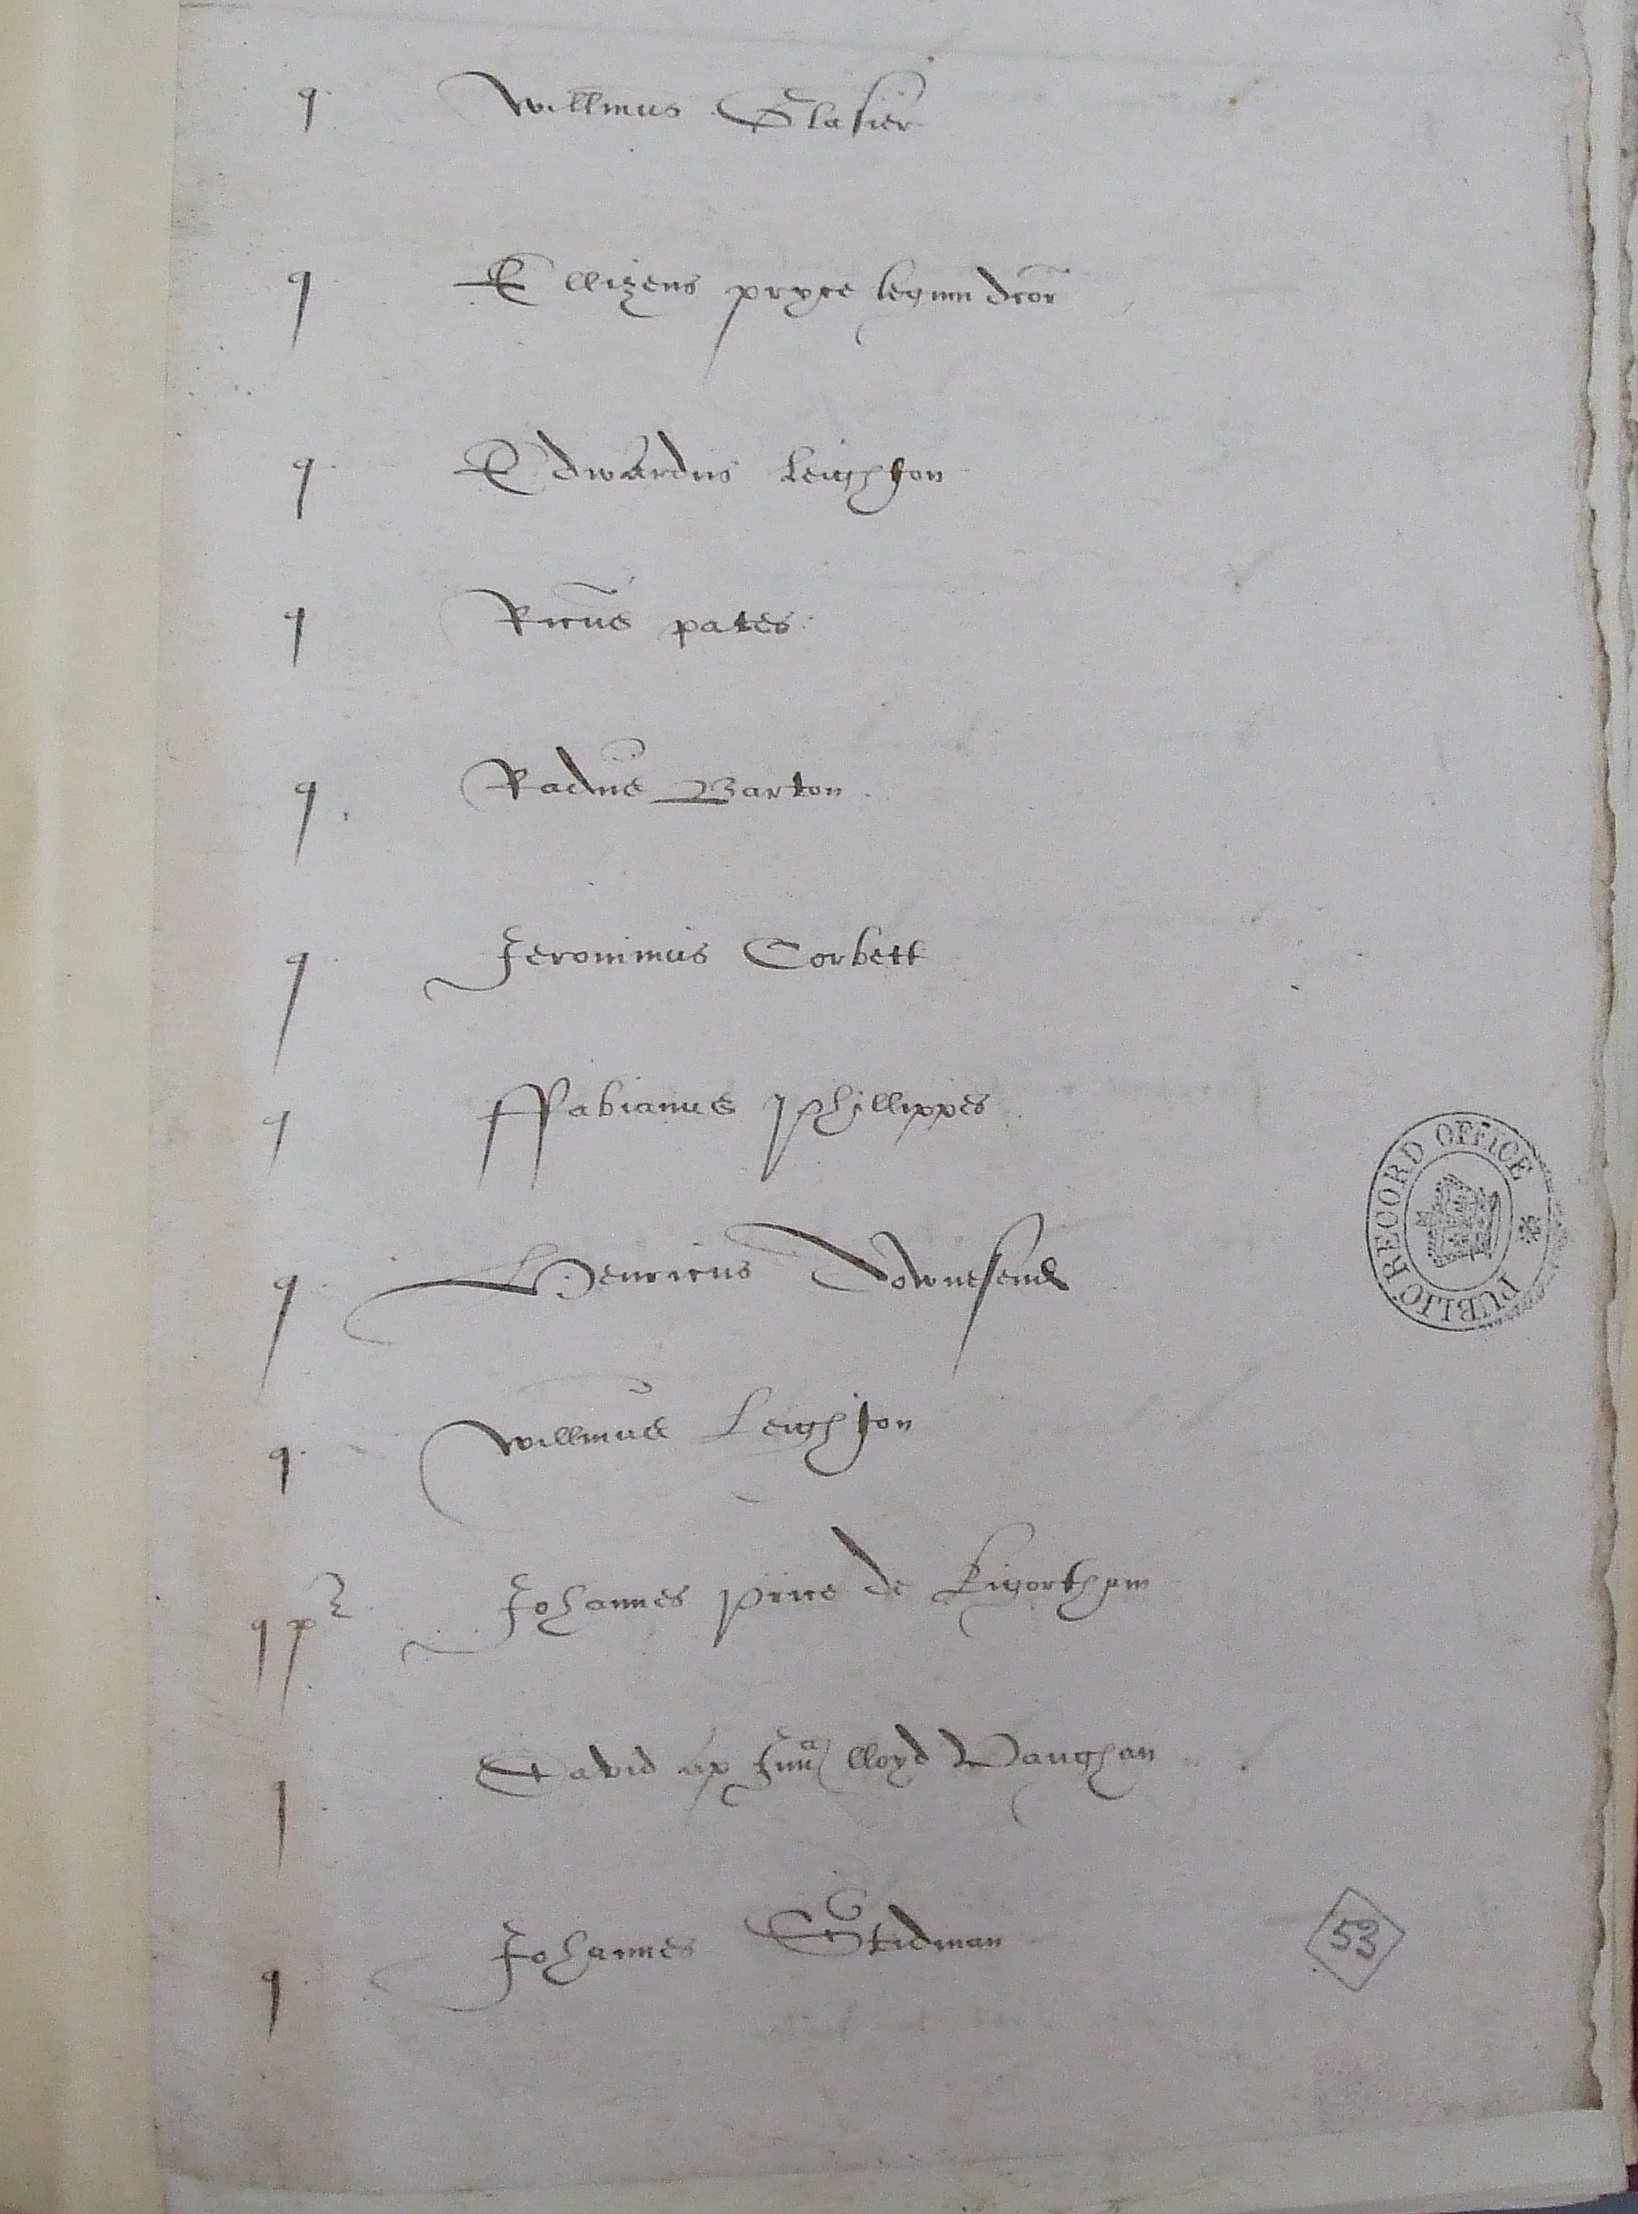 q Willmus Glasier
q Ellizeus pryce legum dcor
q Edwardus Leighton
q Ricus pates
q Radus Barton
q Jeronimus Corbett
q ffabianus Phillippes
q Henricus Townesend
q Willmus Leighton
q Johannes Price de
q David ap Jeuan lloyd Vaughan
q Johannes Stidman
PUBLIC RECORD OFFICE
53